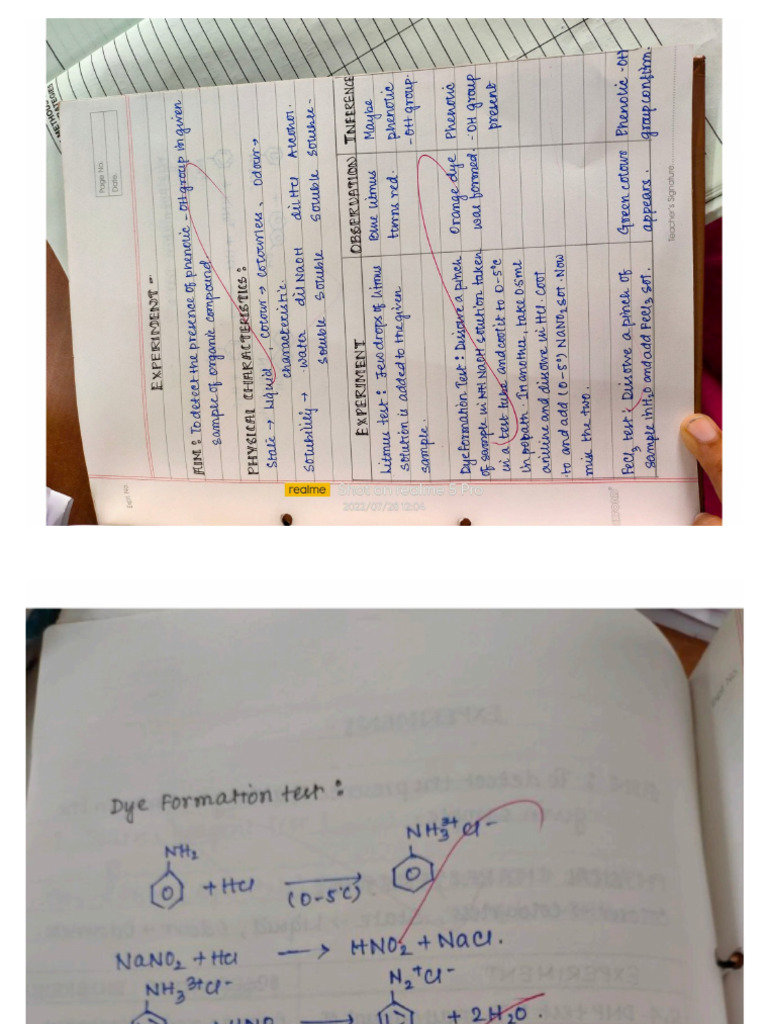 Page No.
Date
EXPERIMENT -
AIM: To detect the presence of phenolic -OH group in given
sample of organic compound.
PHYSICAL CHARACTERISTICS:
State → Liquid, colour → colourless, Odour →
characteristic.
Solubility → water dil NaOH dil HCl Alcohol.
Soluble Soluble Soluble Soluble.
EXPERIMENT OBSERVATION INFERENCE
Litmus test: Few drops of litmus Blue litmus Maybe
solution is added to the given turns red. phenolic
sample. -OH group.
Dye Formation Test: Dissolve a pinch Orange dye Phenolic
of sample in NaOH solution taken was formed. -OH group
in a test tube and cool it to 0-5°C present
In another, take 0.5ml
aniline and dissolve in HCl. Cool
to and add (0-5°) NaNO2 sol. Now
mix the two.
FeCl3 test: Dissolve a pinch of Green colour Phenolic -OH
sample in H2O and add FeCl3 sol. appears. group confirm.
Teacher's Signature
Expt No.
realme Shot on realme 5 Pro
2022/07/28 12:04
Dye Formation test:
NH2 NH3+Cl-
+ HCl → (0-5°C)
NaNO2 + HCl → HNO2 + NaCl.
NH3+Cl- N2+Cl-
→ + 2H2O.